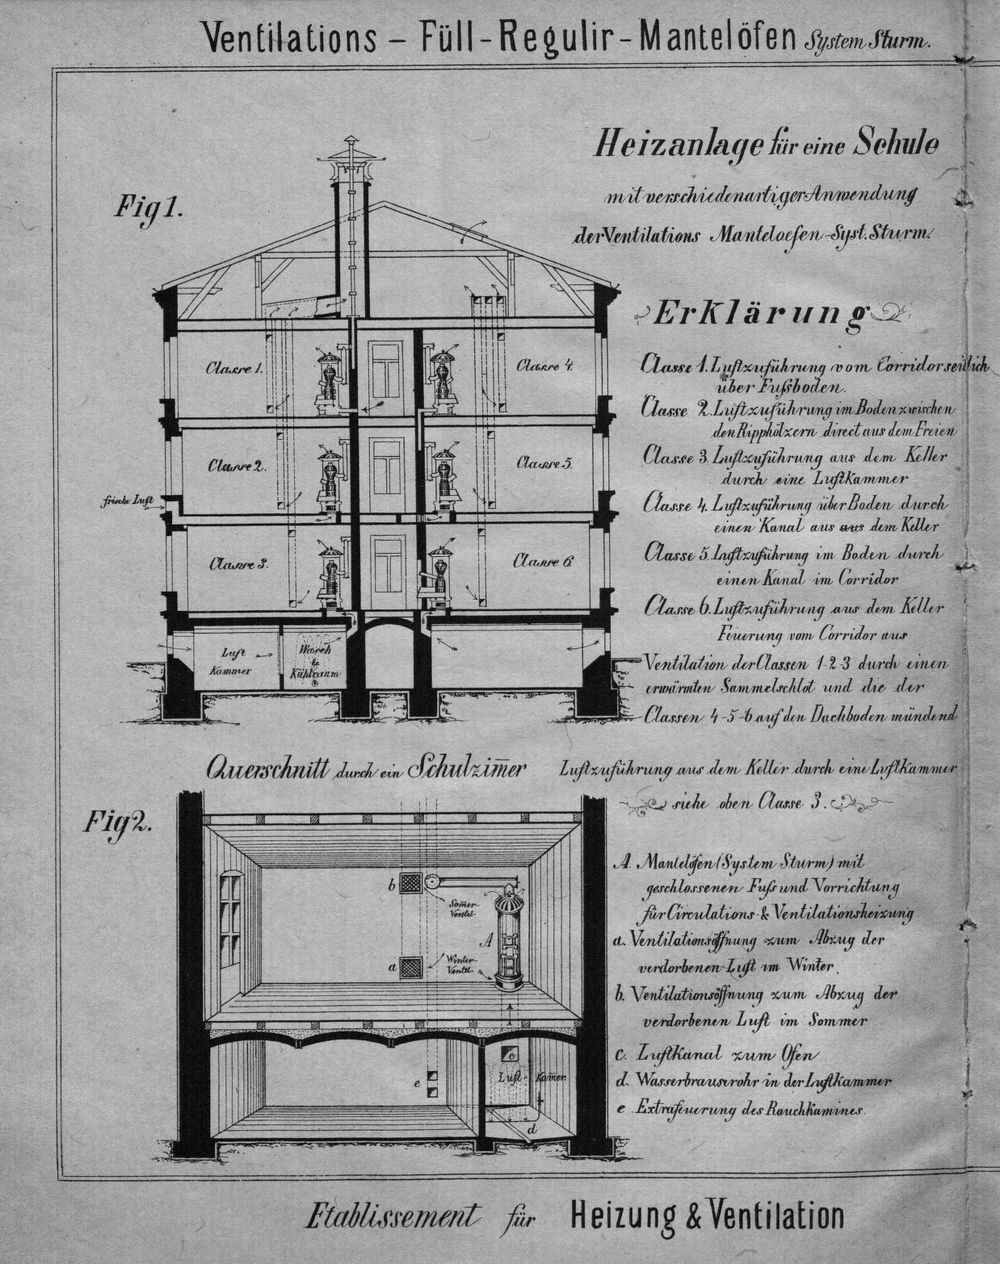 Ventilations – Füll - Regulir - Mantelöfen System Sturm.
Heizanlage für eine Schule
mit verschiedenartiger Anwendung
der Ventilations Manteloefen Syst. Sturm.
Fig 1.
Erklärung
Classe 1. Luftzuführung vom Corridor seitlich
über Fußboden.
Classe 2. Luftzuführung im Boden zwischen
den Ripphölzern direct aus dem Freien
Classe 3. Luftzuführung aus dem Keller
durch eine Luftkammer
Classe 4. Luftzuführung über Boden durch
einen Kanal aus aus dem Keller
Classe 5. Luftzuführung im Boden durch
einen Kanal im Corridor
Classe 6. Luftzuführung aus dem Keller
Feuerung vom Corridor aus
Ventilation der Classen 1-2-3 durch einen
erwärmten Sammelschlot und die der
Classen 4-5-6 auf den Dachboden mündend
Classe 1.
Classe 4.
Classe 2.
Classe 5.
frische Luft
Classe 3.
Classe 6.
Luft
Kammer
Wasch
&
Kühlraum
Querschnitt durch ein Schulzim̅er
Luftzuführung aus dem Keller durch eine Luftkammer
siehe oben Classe 3.
Fig 2.
b
Som̅er-
Ventil.
A
a
Winter-
Ventil.
c
Luft-Kam̅er.
e
d
A. Mantelöfen (System Sturm) mit
geschlossenen Fuß und Vorrichtung
für Circulations & Ventilationsheizung
a. Ventilationsöffnung zum Abzug der
verdorbenen Luft im Winter.
b. Ventilationsöffnung zum Abzug der
verdorbenen Luft im Sommer
c. Luftkanal zum Ofen
d. Wasserbrauserohr in der Luftkammer
e Extrafeuerung des Rauchkamines.
Etablissement für Heizung & Ventilation